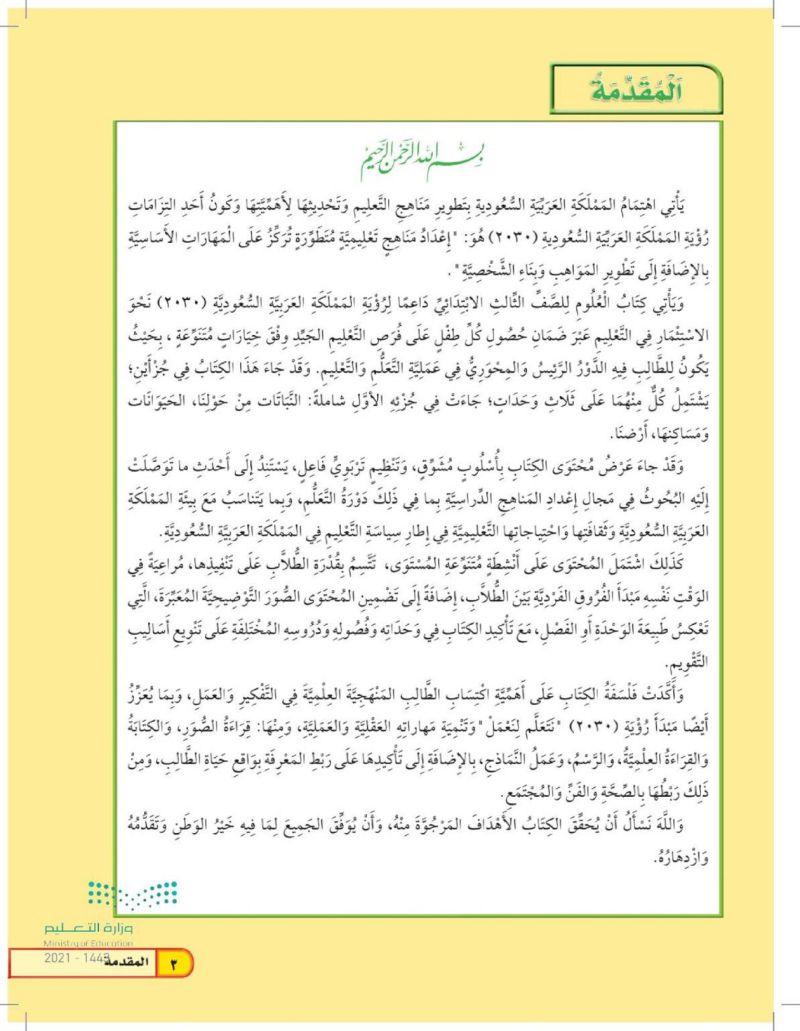 اَلْمُقَدِّمَةُ
بِسْمِ اللهِ الرَّحْمنِ الرَّحِيمِ
يَأْتِي اهْتِمَامُ المَمْلَكَةِ العَرَبِيَّةِ السُّعُودِيةِ بِتَطوِيرِ مَنَاهِجِ التَّعلِيمِ وَتَحْدِيثِهَا لِأَهَمِّيَّتِهَا وَكَونُ أَحَدِ التِزَامَاتِ
رُؤْيَةِ المَمْلَكَةِ العَرَبِيَّةِ السُّعُودِيةِ (٢٠٣٠) هُوَ: "إِعْدَادُ مَنَاهِجٍ تَعْلِيمِيَّةٍ مُتَطَوِّرَةٍ تُرَكِّزُ عَلَى الْمَهَارَاتِ الأَسَاسِيَّةِ
بِالإِضَافَةِ إِلَى تَطْوِيرِ المَوَاهِبِ وَبِنَاءِ الشَّخْصِيَّةِ".
وَيَأْتِي كِتَابُ الْعُلُومِ لِلصَّفِّ الثَّالِثِ الابْتِدَائِيِّ دَاعِمًا لِرُؤْيَةِ المَمْلَكَةِ العَرَبِيَّةِ السُّعُودِيَّةِ (٢٠٣٠) نَحْوَ
الاسْتِثْمَارِ فِي التَّعْلِيمِ عَبْرَ ضَمَانِ حُصُولِ كُلِّ طِفْلٍ عَلَى فُرَصِ التَّعْلِيمِ الجَيِّدِ وِفْقَ خِيَارَاتٍ مُتَنَوِّعَةٍ ، بِحَيْثُ
يَكُونُ لِلطَّالِبِ فِيهِ الدَّوْرُ الرَّئِيسُ وَالمِحْوَرِيُّ فِي عَمَلِيَّةِ التَّعَلُّمِ وَالتَّعْلِيمِ. وَقَدْ جَاءَ هَذَا الكِتَابُ فِي جُزْأَيْنِ؛
يَشْتَمِلُ كُلٌّ مِنْهُمَا عَلَى ثَلَاثِ وَحَدَاتٍ؛ جَاءَتْ فِي جُزْئِهِ الأَوَّلِ شاملةً: النَّبَاتَات مِنْ حَوْلِنَا، الحَيَوَانَات
وَمَسَاكِنهَا، أَرْضنَا.
وَقَدْ جاءَ عَرْضُ مُحْتَوَى الكِتَابِ بِأُسْلُوبٍ مُشَوِّقٍ، وَتَنْظِيمٍ تَرْبَوِيٍّ فَاعِلٍ، يَسْتَنِدُ إِلَى أَحْدَثِ ما تَوَصَّلَتْ
إِلَيْهِ البُحُوثُ فِي مَجالِ إِعْدادِ المَناهِجِ الدِّراسِيَّةِ بِما فِي ذَلِكَ دَوْرَةُ التَّعَلُّمِ، وَبِما يَتَناسَبُ مَعَ بِيئَةِ المَمْلَكَةِ
العَرَبِيَّةِ السُّعُودِيَّةِ وَثَقافَتِها وَاحْتِياجاتِها التَّعْلِيمِيَّةِ فِي إِطارِ سِياسَةِ التَّعْلِيمِ فِي المَمْلَكَةِ العَرَبِيَّةِ السُّعُودِيَّةِ.
كَذَلِكَ اشْتَمَلَ المُحْتَوَى عَلَى أَنْشِطَةٍ مُتَنَوِّعَةِ المُسْتَوَى، تَتَّسِمُ بِقُدْرَةِ الطُّلَّابِ عَلَى تَنْفِيذِها، مُراعِيَةً فِي
الوَقْتِ نَفْسِهِ مَبْدَأَ الفُرُوقِ الفَرْدِيَّةِ بَيْنَ الطُّلَّابِ، إِضَافَةً إِلَى تَضْمِينِ المُحْتَوَى الصُّوَرَ التَّوْضِيحِيَّةَ المُعَبِّرَةَ، الَّتِي
تَعْكِسُ طَبِيعَةَ الوَحْدَةِ أَوِ الفَصْلِ، مَعَ تَأْكِيدِ الكِتَابِ فِي وَحَدَاتِهِ وَفُصُولِهِ وَدُرُوسِهِ المُخْتَلِفَةِ عَلَى تَنْوِيعِ أَسَالِيبِ
التَّقْوِيمِ.
وَأَكَّدَتْ فَلْسَفَةُ الكِتَابِ عَلَى أَهَمِّيَّةِ اكْتِسَابِ الطَّالِبِ المَنْهَجِيَّةَ العِلْمِيَّةَ فِي التَّفْكِيرِ وَالعَمَلِ، وَبِمَا يُعَزِّزُ
أَيْضًا مَبْدَأَ رُؤْيَةِ (٢٠٣٠) "نَتَعَلَّم لِنَعْمَلْ" وَتَنْمِيَةِ مَهاراتِهِ العَقْلِيَّةِ وَالعَمَلِيَّةِ، وَمِنْهَا: قِرَاءَةُ الصُّوَرِ، وَالكِتَابَةُ
وَالقِرَاءَةُ العِلْمِيَّةُ، وَالرَّسْمُ، وَعَمَلُ النَّمَاذِجِ، بِالإِضَافَةِ إِلَى تَأْكِيدِهَا عَلَى رَبْطِ المَعْرِفَةِ بِوَاقِعِ حَيَاةِ الطَّالِبِ، وَمِنْ
ذَلِكَ رَبْطُهَا بِالصِّحَّةِ وَالفَنِّ وَالمُجْتَمَعِ.
وَاللَّهَ نَسْأَلُ أَنْ يُحَقِّقَ الكِتَابُ الأَهْدَافَ المَرْجُوَّةَ مِنْهُ، وَأَنْ يُوَفِّقَ الجَمِيعَ لِمَا فِيهِ خَيْرُ الوَطَنِ وَتَقَدُّمُهُ
وَازْدِهَارُهُ.
وزارة التعـــليم
Ministry of Education
2021 - 1443
المقدمة ٣